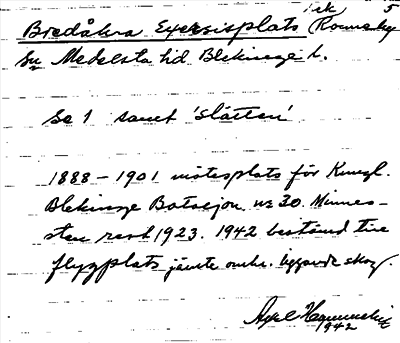 i ek 5
Bredåkra Exersisplats (Ronneby
sn Medelsta hd Blekinge l.
Se 1 samt 'slätten'
1888 – 1901 mötesplats för Kungl.
Blekinge Bataljon nr 30. Minnes-
sten rest 1923. 1942 bestämd till
flygplats jämte omkr. liggande skog.
Axel
1942